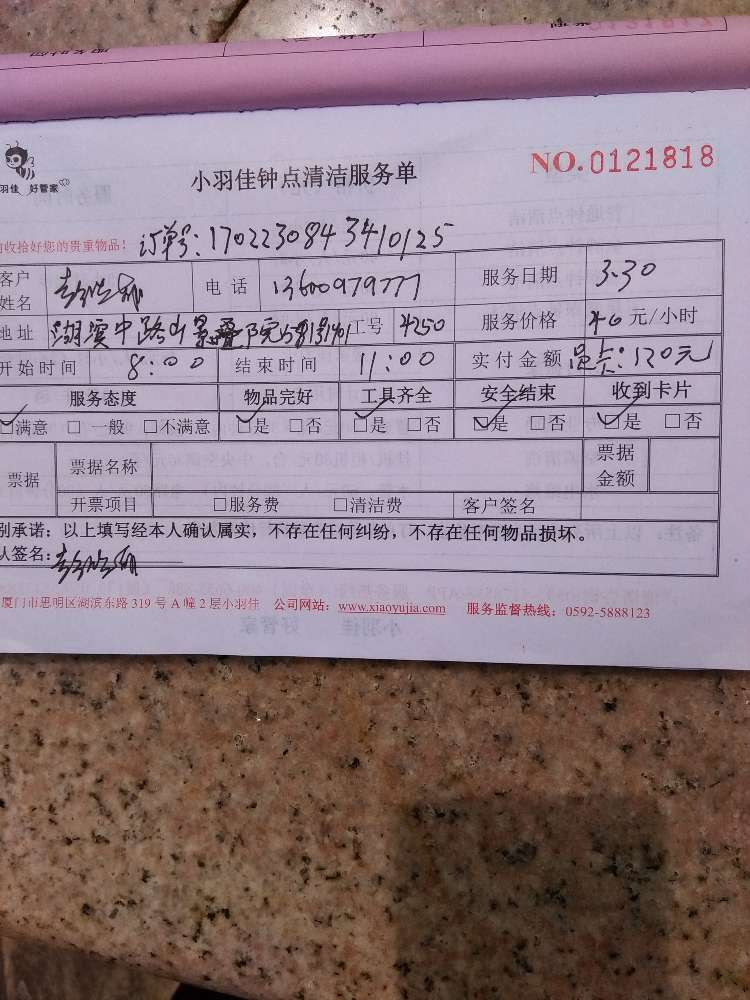 羽佳 好管家
小羽佳钟点清洁服务单
NO.0121818
收拾好您的贵重物品!
订单号:1702230843410125
客户姓名 电话 13600979777 服务日期 3.30
地址 湖滨中路 工号 4250 服务价格 40元/小时
开始时间 8:00 结束时间 11:00 实付金额 120元
服务态度 物品完好 工具齐全 安全结束 收到卡片
☑满意 □一般 □不满意 ☑是 □否 ☑是 □否 ☑是 □否 ☑是 □否
票据 票据名称 票据金额
开票项目 □服务费 □清洁费 客户签名
别承诺:以上填写经本人确认属实,不存在任何纠纷,不存在任何物品损坏。
认签名:
厦门市思明区湖滨东路319号A幢2层小羽佳 公司网站:www.xiaoyujia.com 服务监督热线:0592-5888123